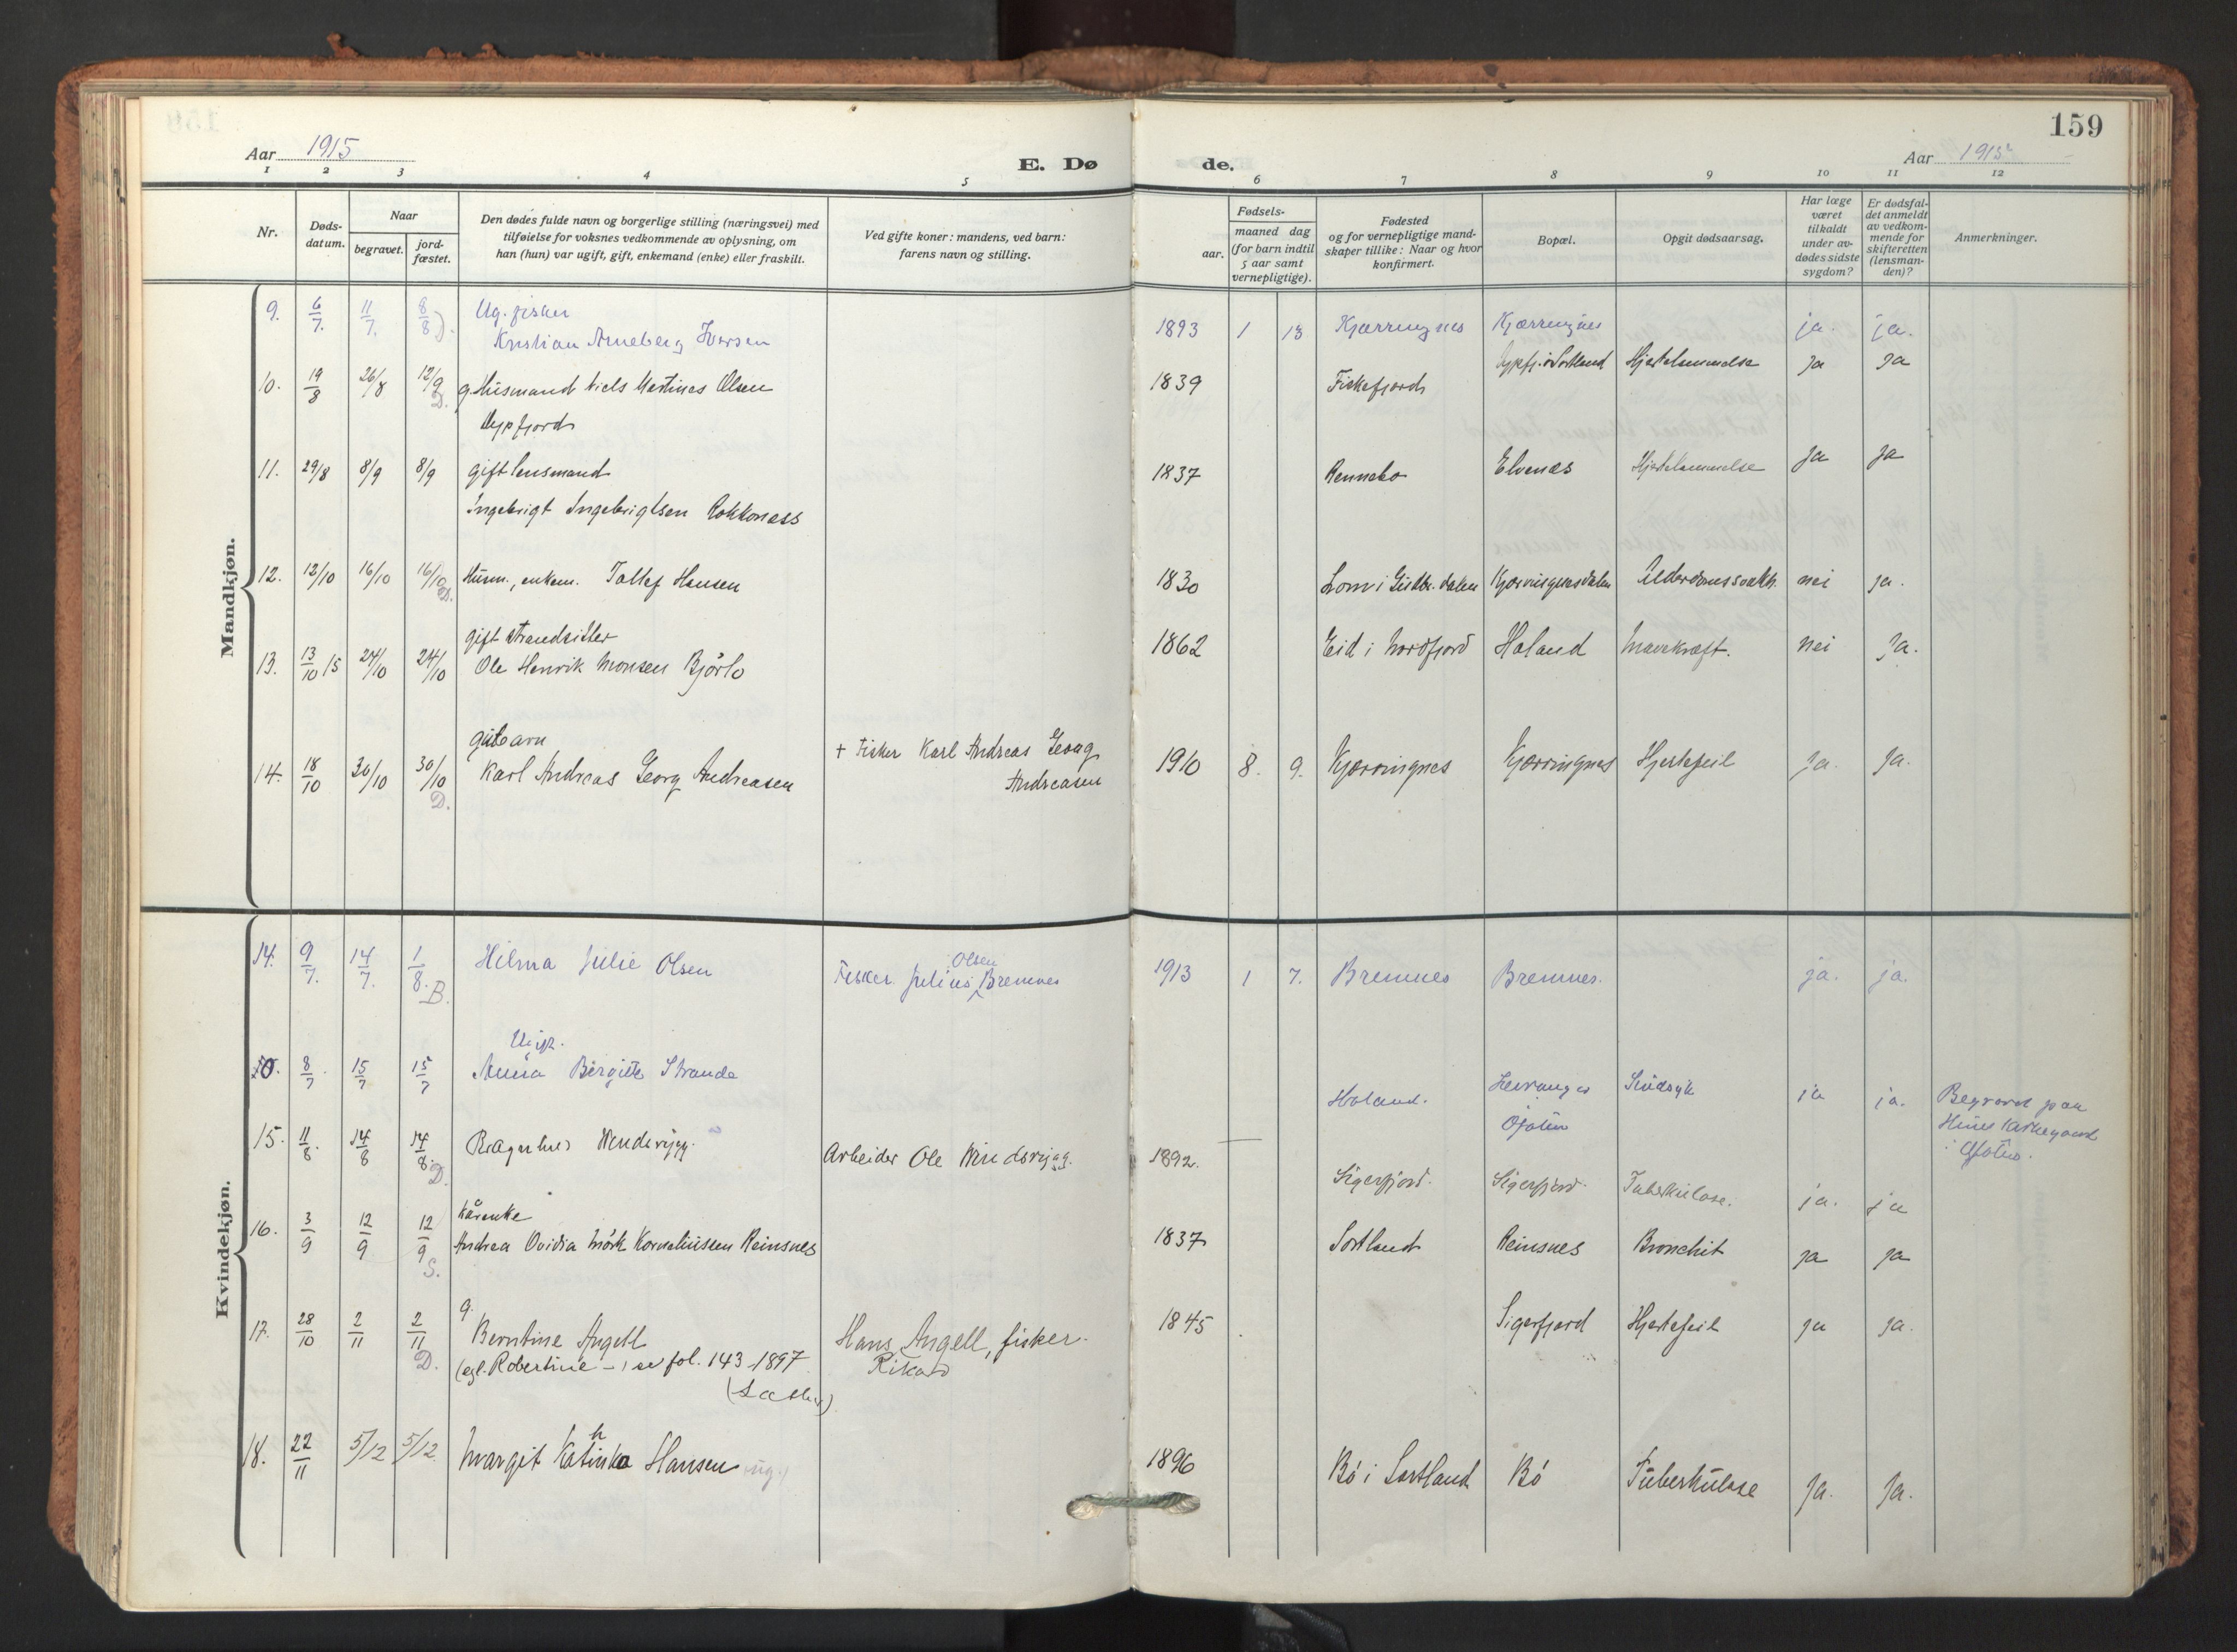 159
Aar 1915
E. Dø de.
Aar 1915
1 2 3 4 5 6 7 8 9 10 11 12
Nr.
Døds-
datum.
Naar
begravet.
jord-
fæstet.
Den dødes fulde navn og borgerlige stilling (næringsvei) med
tilføielse for voksnes vedkommende av oplysning, om
han (hun) var ugift, gift, enkemand (enke) eller fraskilt.
Ved gifte koner: mandens, ved barn:
farens navn og stilling.
Fødsels-
aar.
maaned dag
(for barn indtil
5 aar samt
vernepligtige).
Fødested
og for vernepligtige mand-
skaper tillike: Naar og hvor
konfirmert.
Bopæl.
Opgit dødsaarsag.
Har læge
været
tilkaldt
under av-
dødes sidste
sygdom?
Er dødsfal-
det anmeldt
av vedkom-
mende for
skifteretten
(lensman-
den)?
Anmerkninger.
Mandkjøn.
Ug. fisker
9. 6/7. 11/7. 8/8 D. Kristian Arneberg Iversen 1893 1 13 Kjærringnes Kjærringnes ja. ja.
10. 19/8 26/8 12/9 D. g. Husmand Niels Martines Olsen 1839 Fiskefjord Sortland Hjertelammelse ja ja
11. 29/8 8/9 8/9 gift lensmand 1837 Rennebo Elvenes Hjertelammelse ja ja
Ingebrigt Ingebrigtsen Rokkones
12. 12/10 16/10 16/10 D. Husm., enkem. Tollef Hansen 1830 Lom i Gudbr. dalen Kjærringnesdalen Alderdomssvakh. nei ja.
gift strandsitter
13. 13/10 15 24/10 24/10 Ole Henrik Monsen Bjørlo 1862 Eid i Nordfjord Holand Mavekræft. nei ja.
14. 18/10 30/10 30/10 D. Karl Andreas Georg Andreasen + Fisker Karl Andreas Georg 1910 8. 9. Kjærringnes Kjærringnes Hjertefeil ja. ja.
Andreasen
Kvindekjøn.
14. 9/7. 14/7. 1/8. B. Hilma Julie Olsen Fisker Julius Olsen Bremnes 1913 1 7. Bremnes Bremnes. ja. ja.
Ugift.
8/7. 15/7 15/7 Anna Birgitte Strande Holand. Sindsyk ja ja. Begravet paa
15. 11/8. 14/8 14/8. D. Ragnhild Arbeider Ole 1892. Sigerfjord. Sigerfjord. Tuberkulose. ja. ja
Kårenke
16. 3/9 12/9 12/9 S. Andrea Ovidia Mörk Korneliussen Reinsnes 1837 Sortland Reinsnes Bronchit ja ja
g.
17. 28/10 2/11 2/11 D. Berntine Angell Hans Angell, fisker. 1845 Sigerfjord Hjertefeil ja ja.
(egl. Robertine –, se fol. 143 – 1897 Rikard
18. 22/11 5/12 5/12 Margit Kathinka Hansen (ug.) 1896 Bö i Sortland Bö Tuberkulose Ja. Ja.